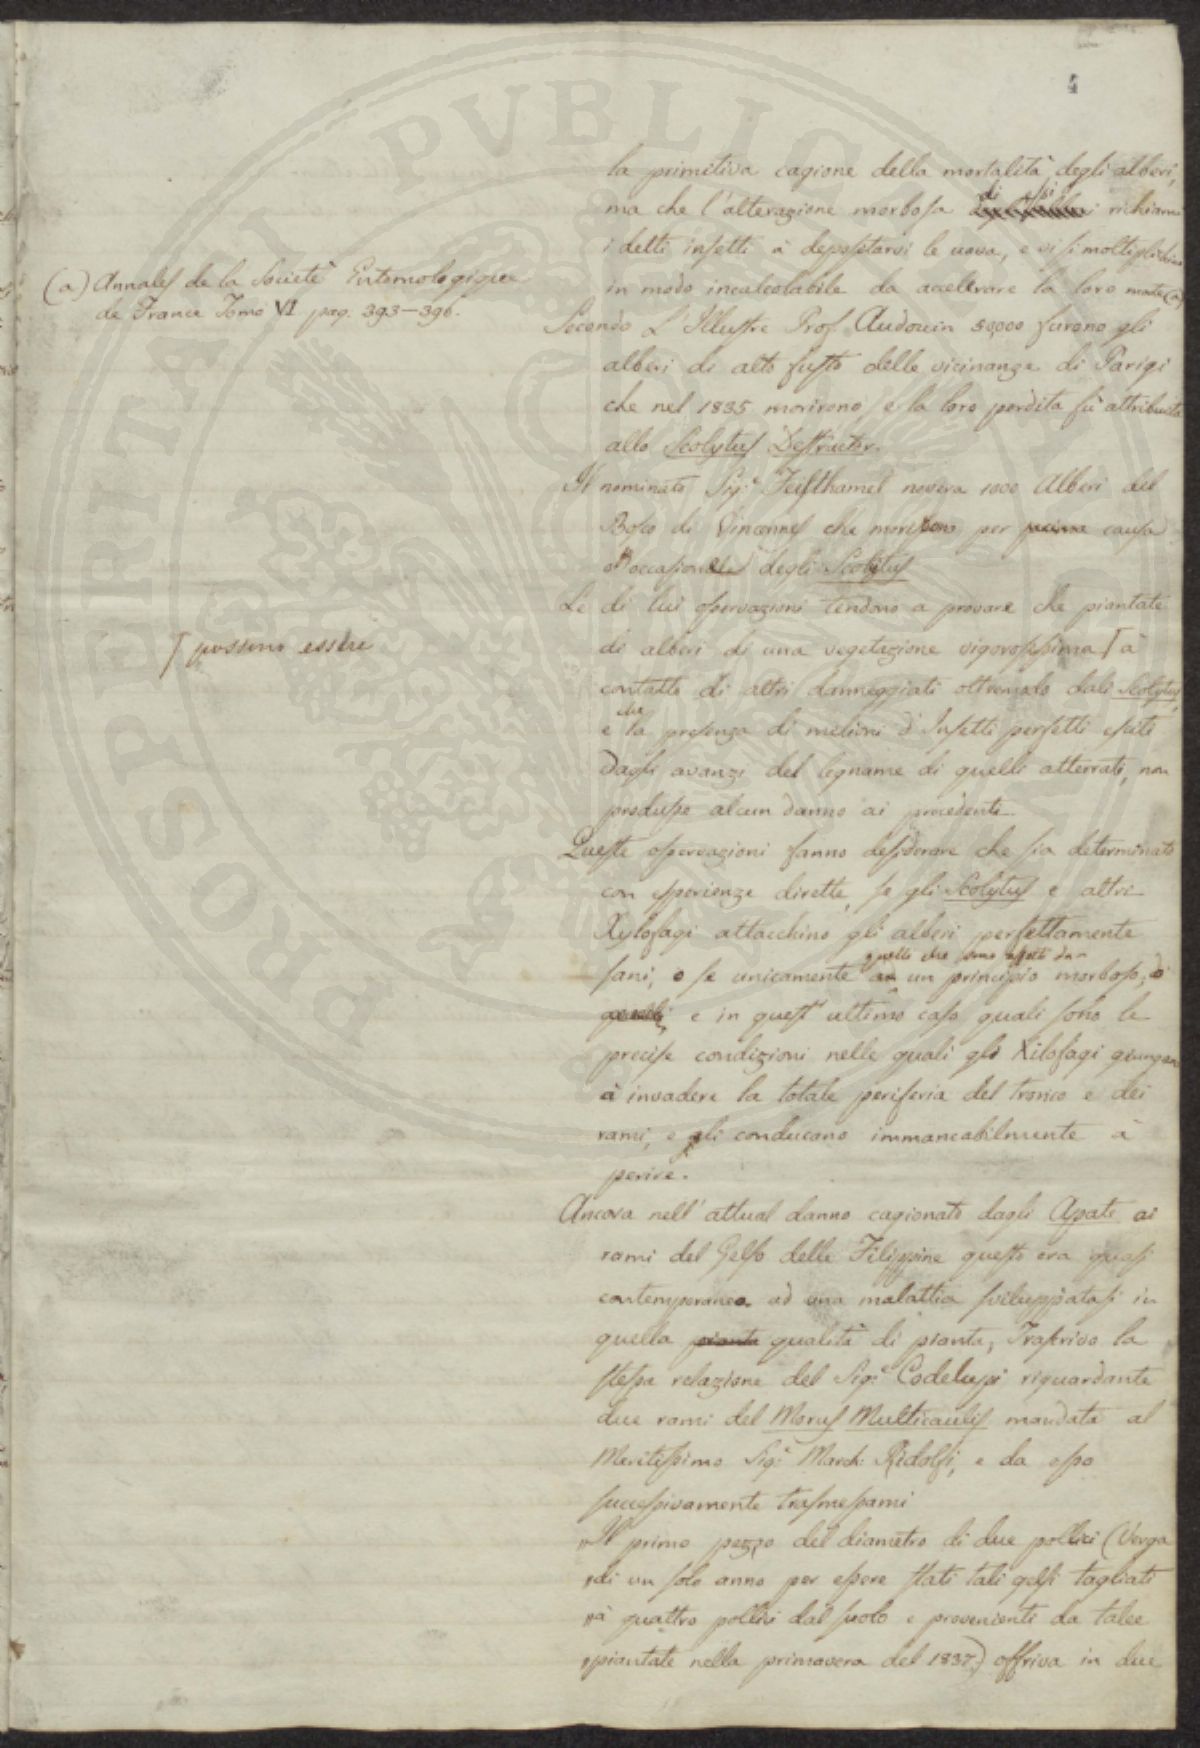 4
la primitiva cagione della mortalità degli alberi,
ma che l'alterazione morbosa di essi richiama
i detti insetti à depositarvi le uova, e vi si moltiplichino
in modo incalcolabile da accellerare la loro morte (a)
(a) Annales de la Societè Entomologique
de France Tomo VI pag. 393–396.
Secondo L'Illustre Prof. Audouin 50,000 furono gli
alberi di alto fusto delle vicinanze di Parigi
che nel 1835 morirono, e la loro perdita fù attribuita
allo Scolytus Destructor.
Il nominato Sig.e Feisthamel novera 1000 Alberi del
Bosco di Vincennes che morirono per causa
occasionale degli Scolytus
Le di lui osservazioni tendono a provare che piantate
di alberi di una vegetazione vigorosissima Γ à
Γ possono essere
contatto di altri danneggiati oltremodo dali Scolytus,
e che la presenza di melioni d'Insetti perfetti esciti
dagli avanzi del legname di quelli atterrati, non
produsse alcun danno ai precedenti.
Queste osservazioni fanno desiderare che sia determinato
con esperienze dirette, se gli Scolytus e altri
Xylofagi attacchino gli alberi perfettamente
sani, o se unicamente quelli che sono affetti da un principio morboso,
e in quest'ultimo caso quali sono le
precise condizioni nelle quali gli Xilofagi giungono
à invadere la totale periferia del tronco e dei
rami, e gli conducono immancabilmente à
perire.
Ancora nell'attual danno cagionato dagli Apate ai
rami del Gelso delle Filippine questo era quasi
contemporaneo ad una malattia sviluppatasi in
quella pianta qualità di pianta, Trascrivo la
stessa relazione del Sig.e Codelupi riguardante
due rami del Morus Multicaulis mandata al
Meritissimo Sig.e March. Ridolfi, e da esso
successivamente trasmessami
"Il primo pezzo del diametro di due pollici (Verga
"di un solo anno per essere stati tali gelsi tagliati
"à quattro pollici dal suolo e provenienti da talee
"piantate nella primavera del 1837.) offriva in due